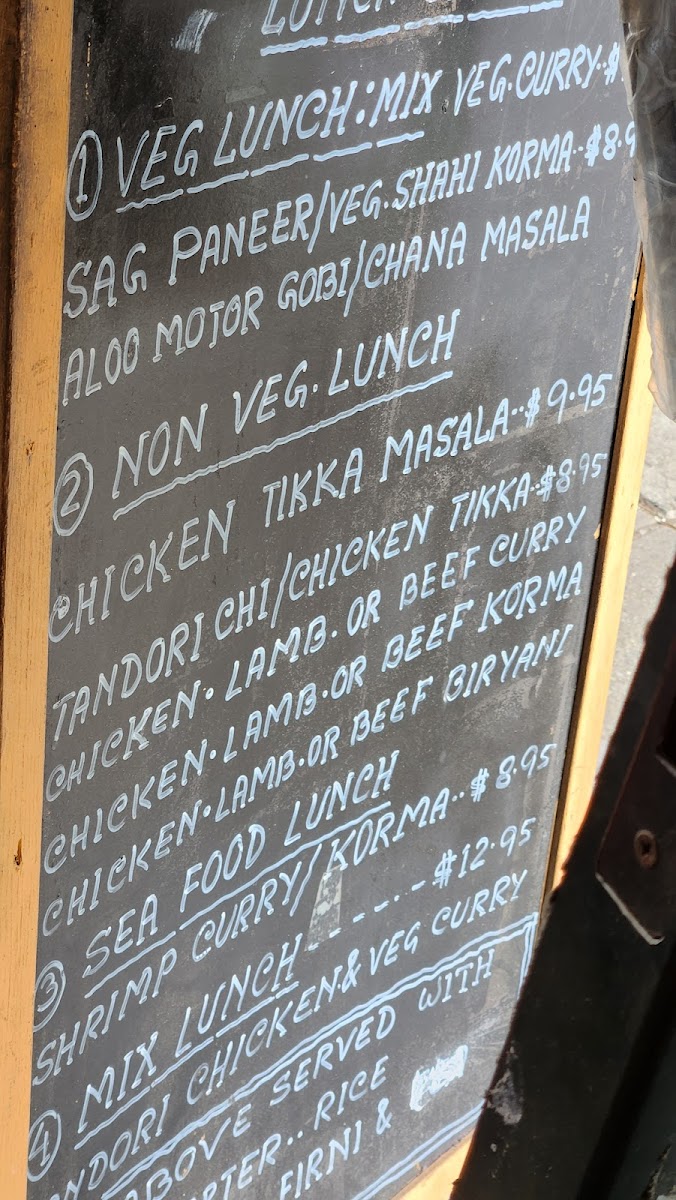 LUNCH
① VEG LUNCH: MIX VEG. CURRY..$
SAG PANEER/VEG. SHAHI KORMA..$8.9
ALOO MOTOR GOBI/CHANA MASALA
② NON VEG. LUNCH
CHICKEN TIKKA MASALA..$9.95
TANDORI CHI/CHICKEN TIKKA.$8.95
CHICKEN. LAMB. OR BEEF CURRY
CHICKEN. LAMB. OR BEEF KORMA
CHICKEN. LAMB. OR BEEF BIRYANI
③ SEA FOOD LUNCH
SHRIMP CURRY/KORMA..$8.95
④ MIX LUNCH ------$12.95
NDORI CHICKEN & VEG CURRY
ABOVE SERVED WITH
RICE
FIRNI &